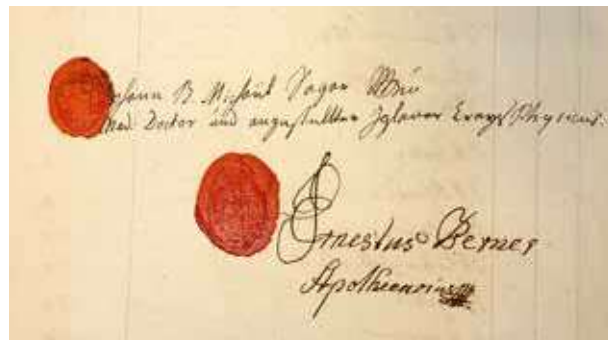 Johann B. Michael Sagar
Med. Doctor und angestellter Iglauer Crays Physicus.
Ernestus Berner
Apothecarius